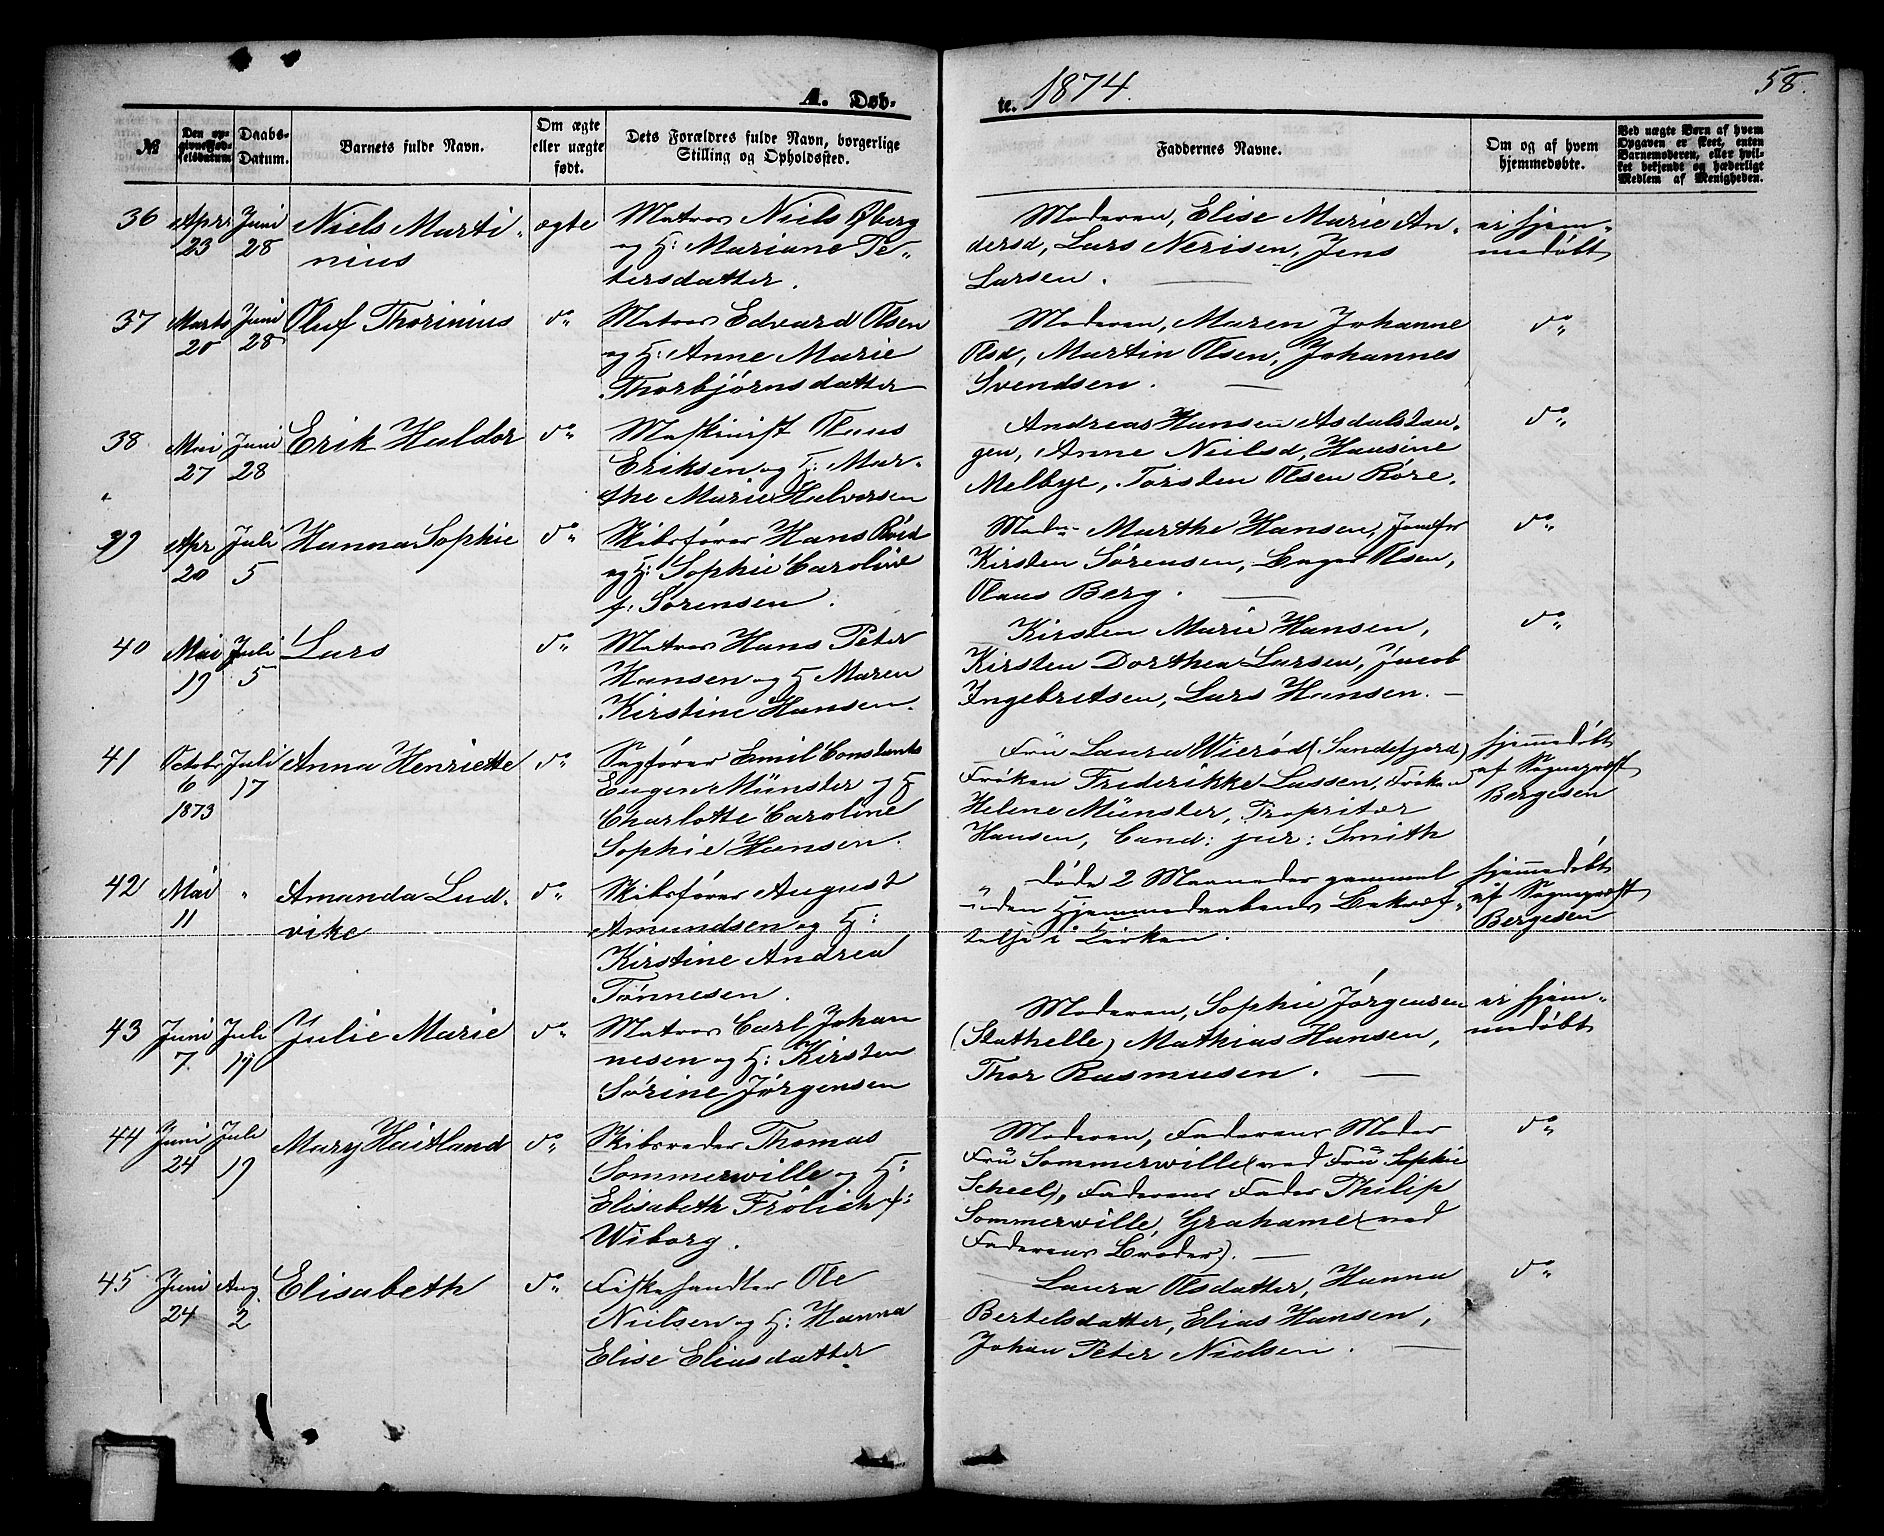 A. Døb-
te. 1874.
58.
№
Den opgivne Fødselsdatum
Daabs-Datum.
Barnets fulde Navn.
Om ægte eller uægte født.
Dets Forældres fulde Navn, borgerlige Stilling og Opholdssted.
Faddernes Navne.
Om og af hvem hjemmedøbte.
Ved uægte Børn af hvem Opgaven er skeet, enten Barnemoderen, eller hvilket bekjendt og hæderligt Medlem af Menigheden.
36 Apr. 23 Juni 28 Niels Marti- ægte Matros Niels Øberg
nius og H: Mariane Pe-
tersdatter.
Moderen, Elise Marie An- ei hjem-
dersd, Lars Nerisen, Jens medöbt
Larsen.
37 Marts 20 Juni 28 Oluf Thorinius do Matros Edvard Olsen
og H: Anne Marie
Thorbjörnsdatter
Moderen, Maren Johanne do
Olsd, Martin Olsen, Johannes
Svendsen.
38 Mai 27 Juni 28 Erik Haldor do Maskinist Claus
Eriksen og H: Mar-
the Marie Halvorsen
Andreas Hansen Asdalstan- do
gen, Anne Neilsd, Hansine
Melbye, Torsten Olsen Röre.
39 Apr 20 Juli 5 Hanna Sophie do Skibsförer Hans
og H: Sophie Caroline
f. Sörensen.
Mod. Marthe Hansen, Jomfr do
Kirsten Sörensen, Olsen,
Claus Berg.
40 Mai 19 Juli 5 Lars do Matros Hans Peter
Hansen og H Maren
Kirstine Hansen.
Kirsten Marie Hansen, do
Kirsten Dorthea Larsen, Jacob
Ingebritsen, Lars Hansen.
41 Octobr 6 1873 Juli 17 Anna Henriette do Sagförer Emil Constants
Eugen Münster og H
Charlotte Caroline
Sophie Hansen.
Frü Laura Wieröd (Sandefjord) hjemmedöbt
Fröken Frederikke Lassen, Fröken af Sogneprest
Helene Münster, Propritær Bergesen
Hansen, Cand: jur: Smith
42 Mai 11 " Amanda Lud- do Skibsförer August
vike Amundsen og H:
Kirstine Andrea
Tönnesen.
döde 2 Maaneder gammel hjemmedöbt
uden Hjemmedaabens Bekræf- af Sogneprest
telse i Kirken. Bergesen
43 Juni 7 Juli 19 Julie Marie do Matros Carl Johan
nesen og H: Kirsten
Sörine Jörgensen
Moderen, Sophie Jörgensen ei hjem-
(Stathelle) Mathias Hansen, medöbt
Thor Rasmusen.
44 Juni 24 Juli 19 Mary Haitland do Skibsreder Thomas
Sommerwille og H:
Elisabeth Frölich f:
Wiborg.
Moderen, Faderens Moder do
Frü Sommerwille (ved Frü Sophie
Scheel), Faderens Fader Philip
Sommerwille, Grahame (ved
Faderens Broder).
45 Juni 24 Aug. 2 Elisabeth do Fiskehandler Ole
Nielsen og H: Hanna
Elise Eliasdatter
Laura Olsdatter, Hanna do
Bertelsdatter, Elias Hansen,
Johan Peter Nielsen.